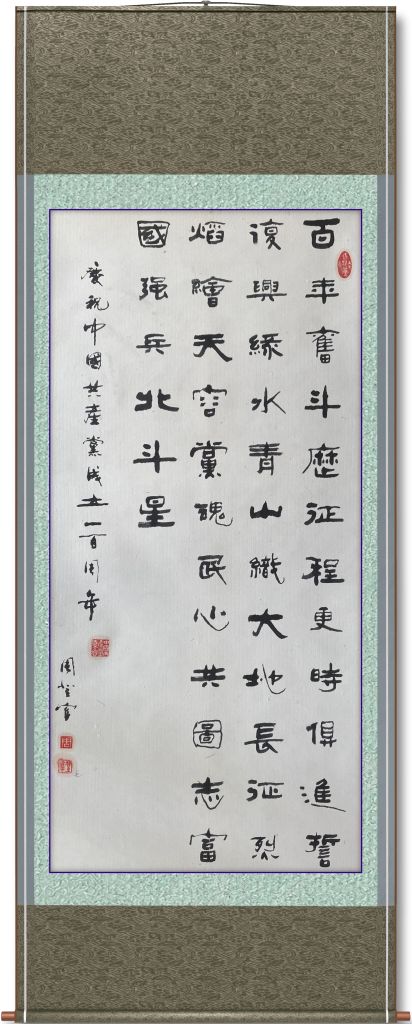 百年奮斗歷征程更時俱進誓
復興緣水青山織大地長征烈
焰繪天容黨魂民心共圖志富
國强兵北斗星
慶祝中國共產黨成立一百周年
周登